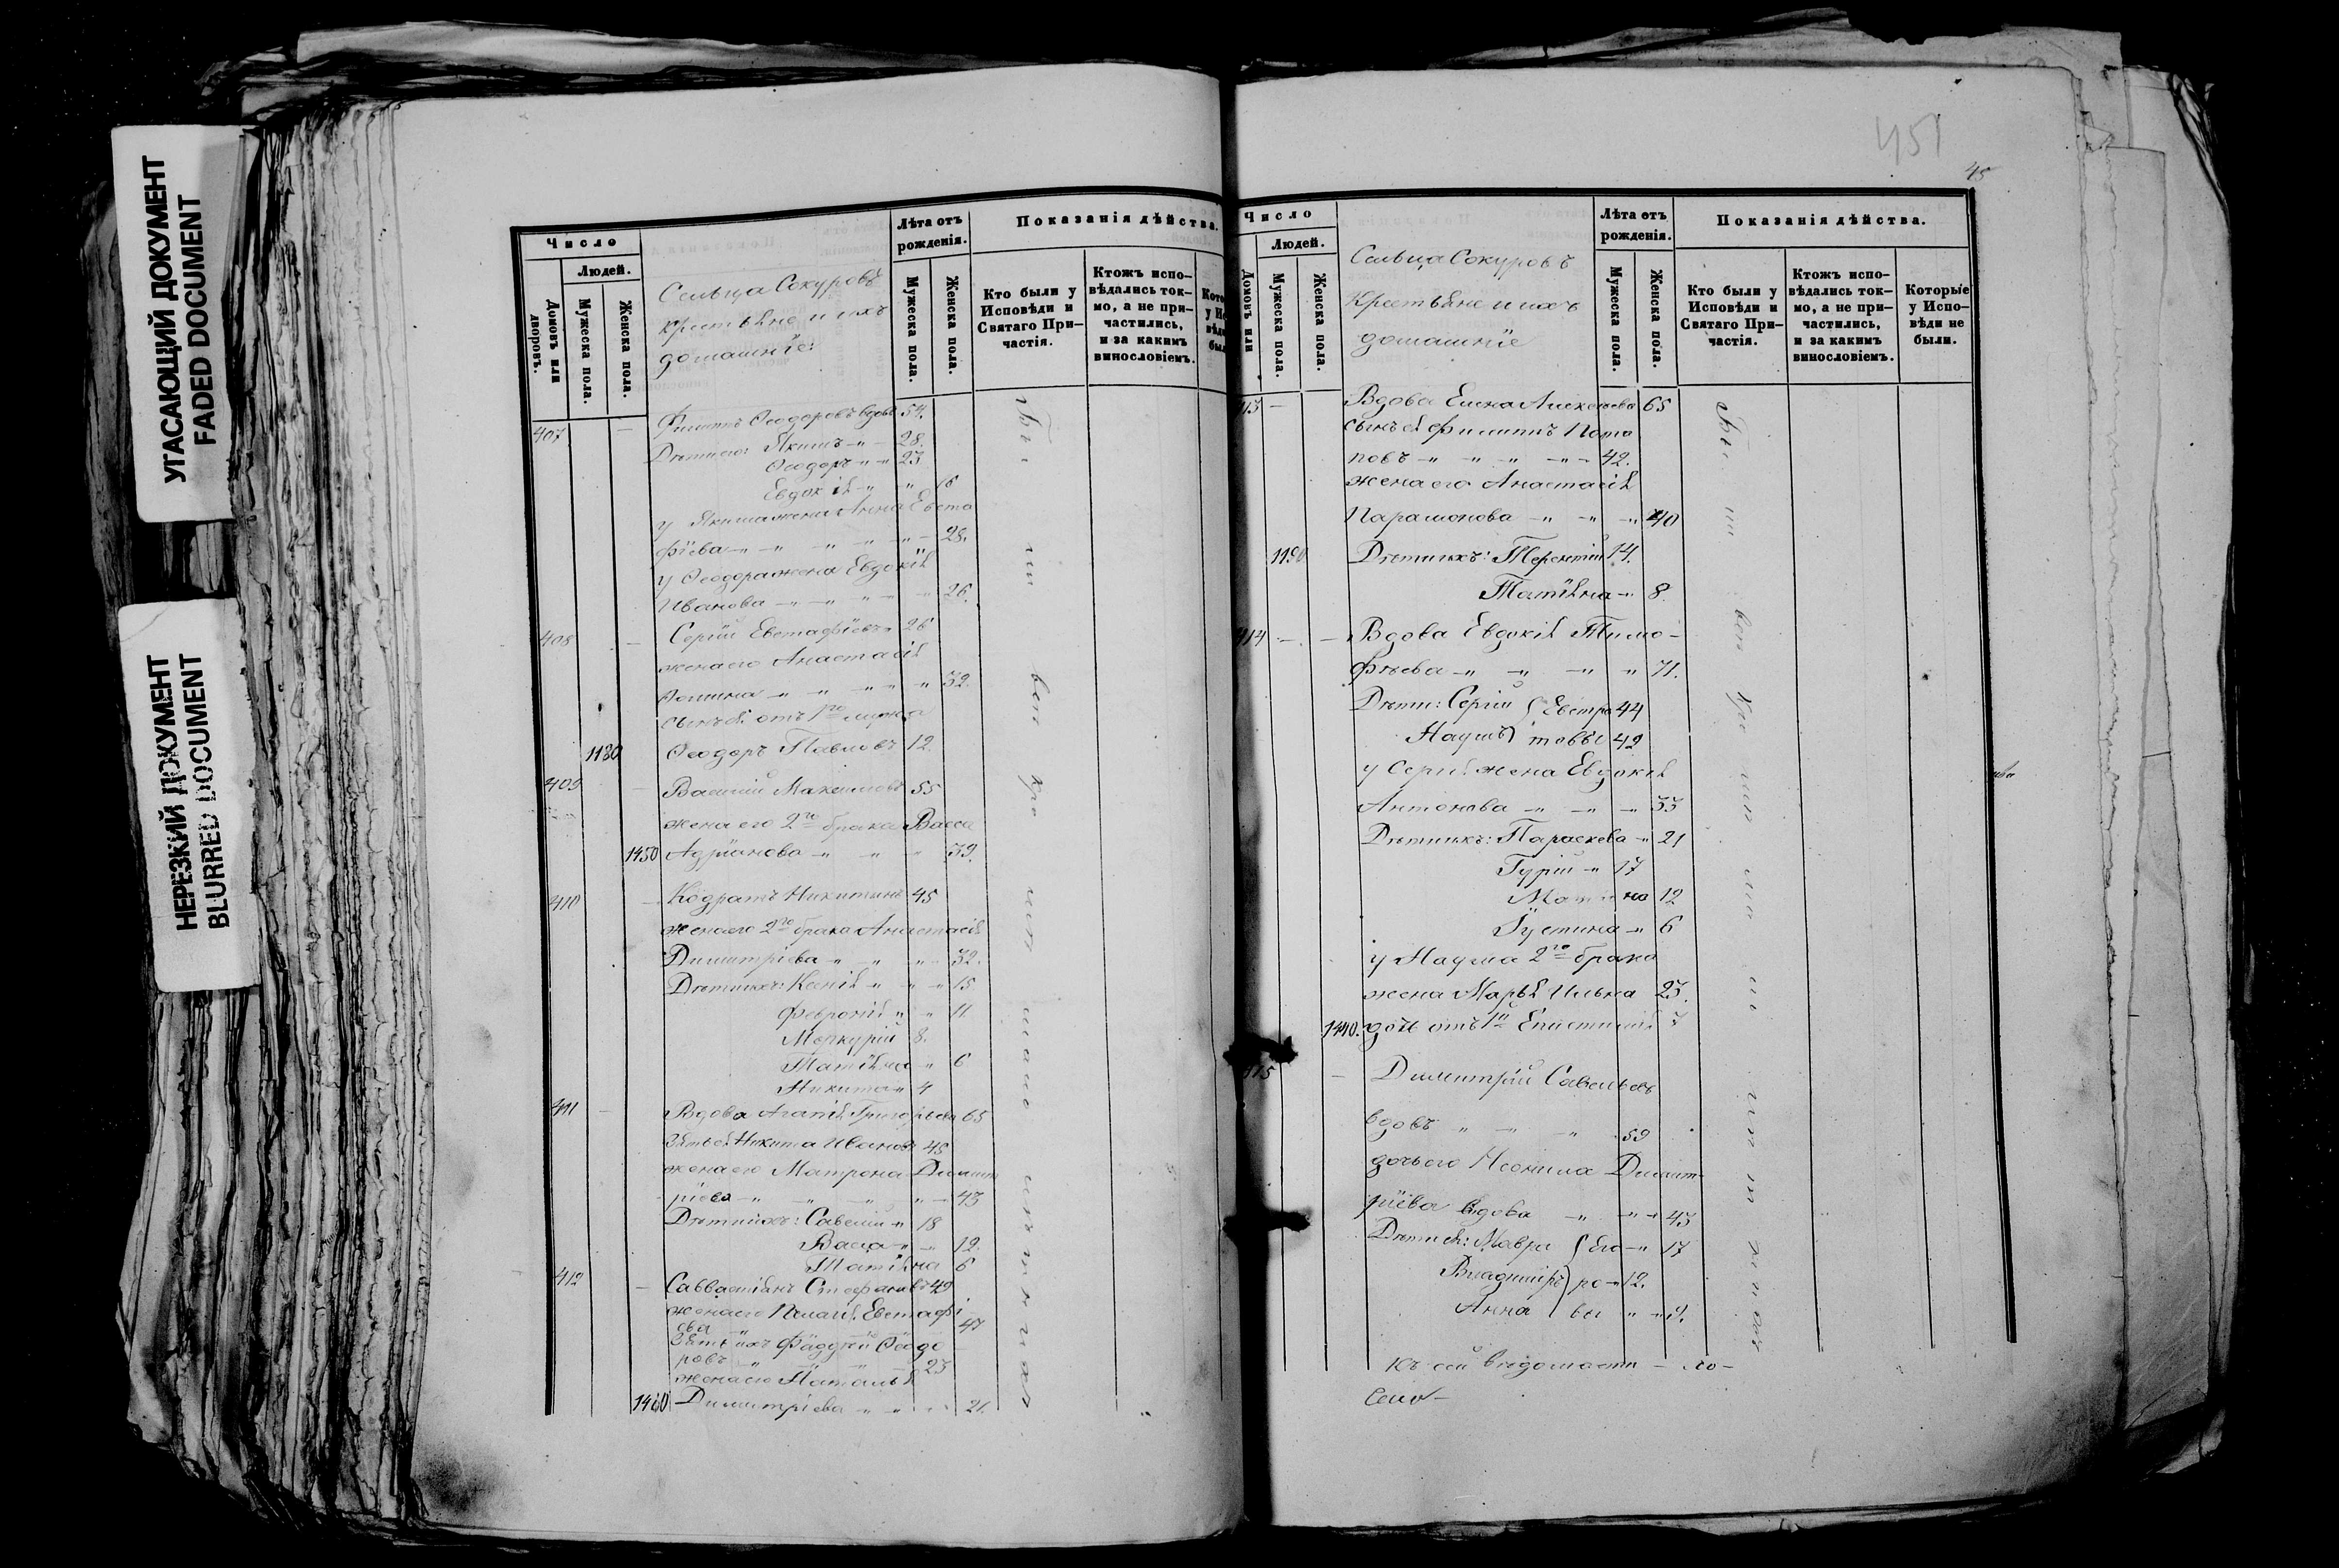 УГАСАЮЩИЙ ДОКУМЕНТ
FADED DOCUMENT
НЕРЕЗКИЙ ДОКУМЕНТ
BLURRED DOCUMENT
Число
Людей.
Домовъ или дворовъ.
Мужеска пола.
Женска пола.
Сельца Сокуровъ
крестьяне и ихъ
домашніе:
Лѣта отъ рожденія.
Мужеска пола.
Женска пола.
Показанія дѣйства.
Кто были у Исповѣди и Святаго Причастія.
Ктожъ исповѣдались токмо, а не причастились, и за какимъ винословіемъ.
407 — Филиппъ Ѳеодоровъ вдовъ 54.
Дѣти его: Якимъ 28.
Ѳеодоръ 23
Евдокія 16
у Якима жена Анна Евста
фіева 28.
у Ѳеодора жена Евдокія
Иванова 26.
408 — Сергій Евстафіевъ 26
жена его Анастасія
Ѳомина 32.
сынъ ея отъ 1го мужа
1180 Ѳеодоръ Павловъ 12
409 — Василій Максимовъ 55
жена его 2го брака Васса
1450 Адріанова 39.
410 — Кодратъ Никитинъ 45
жена его 2го брака Анастасія
Димитріева 32.
Дѣти ихъ: Ксенія 15
Февронія 11
Меркурій 8.
Татіяна 6
Никита 4
411 — Вдова Агапія Григорьева 65
Зять ея Никита Ивановъ 45
жена его Матрона Димит
ріева 43
Дѣти ихъ: Савелій 18
Васса 12.
Татіяна 6
412 — Савватіянъ Стефановъ 49
жена его Пелагія Евстафі
ева 47
Зять ихъ Фаддей Ѳеодо
ровъ 23
жена его Наталья
1460 Димитріева 21.
451
45
Число
Людей.
Домовъ или
Мужеска пола.
Женска пола.
Сельца Сокуровъ
Крестьяне и ихъ
домашніе
Лѣта отъ рожденія.
Мужеска пола.
Женска пола.
Показанія дѣйства.
Кто были у Исповѣди и Святаго Причастія.
Ктожъ исповѣдались токмо, а не причастились, и за какимъ винословіемъ.
Которые у Исповѣди не были.
413 — Вдова Елена Алексеева 65
сынъ ея Филиппъ Пота
повъ 42.
жена его Анастасія
Парамонова 40
1190 Дѣти ихъ: Терентій 14.
Татіяна 8.
414 — Вдова Евдокія Тимо-
фѣева 71.
Дѣти: Сергій Евстра 44
Наумъ товы 42
у Сергія жена Евдокія
Антонова 33
Дѣти ихъ: Параскева 21
Гурій 17
12
Іустина 6
у Наума 2го брака
жена Марья Ильина 23.
1440. дочь отъ 1й Епистимія
415 — Димитрій Савельевъ
вдовъ 59
дочь его Неонила Димит-
ріева вдова 43
Дѣти ея: Мавра Его 17
Владиміръ ро 12.
Анна вы 9.
Къ сей вѣдомости